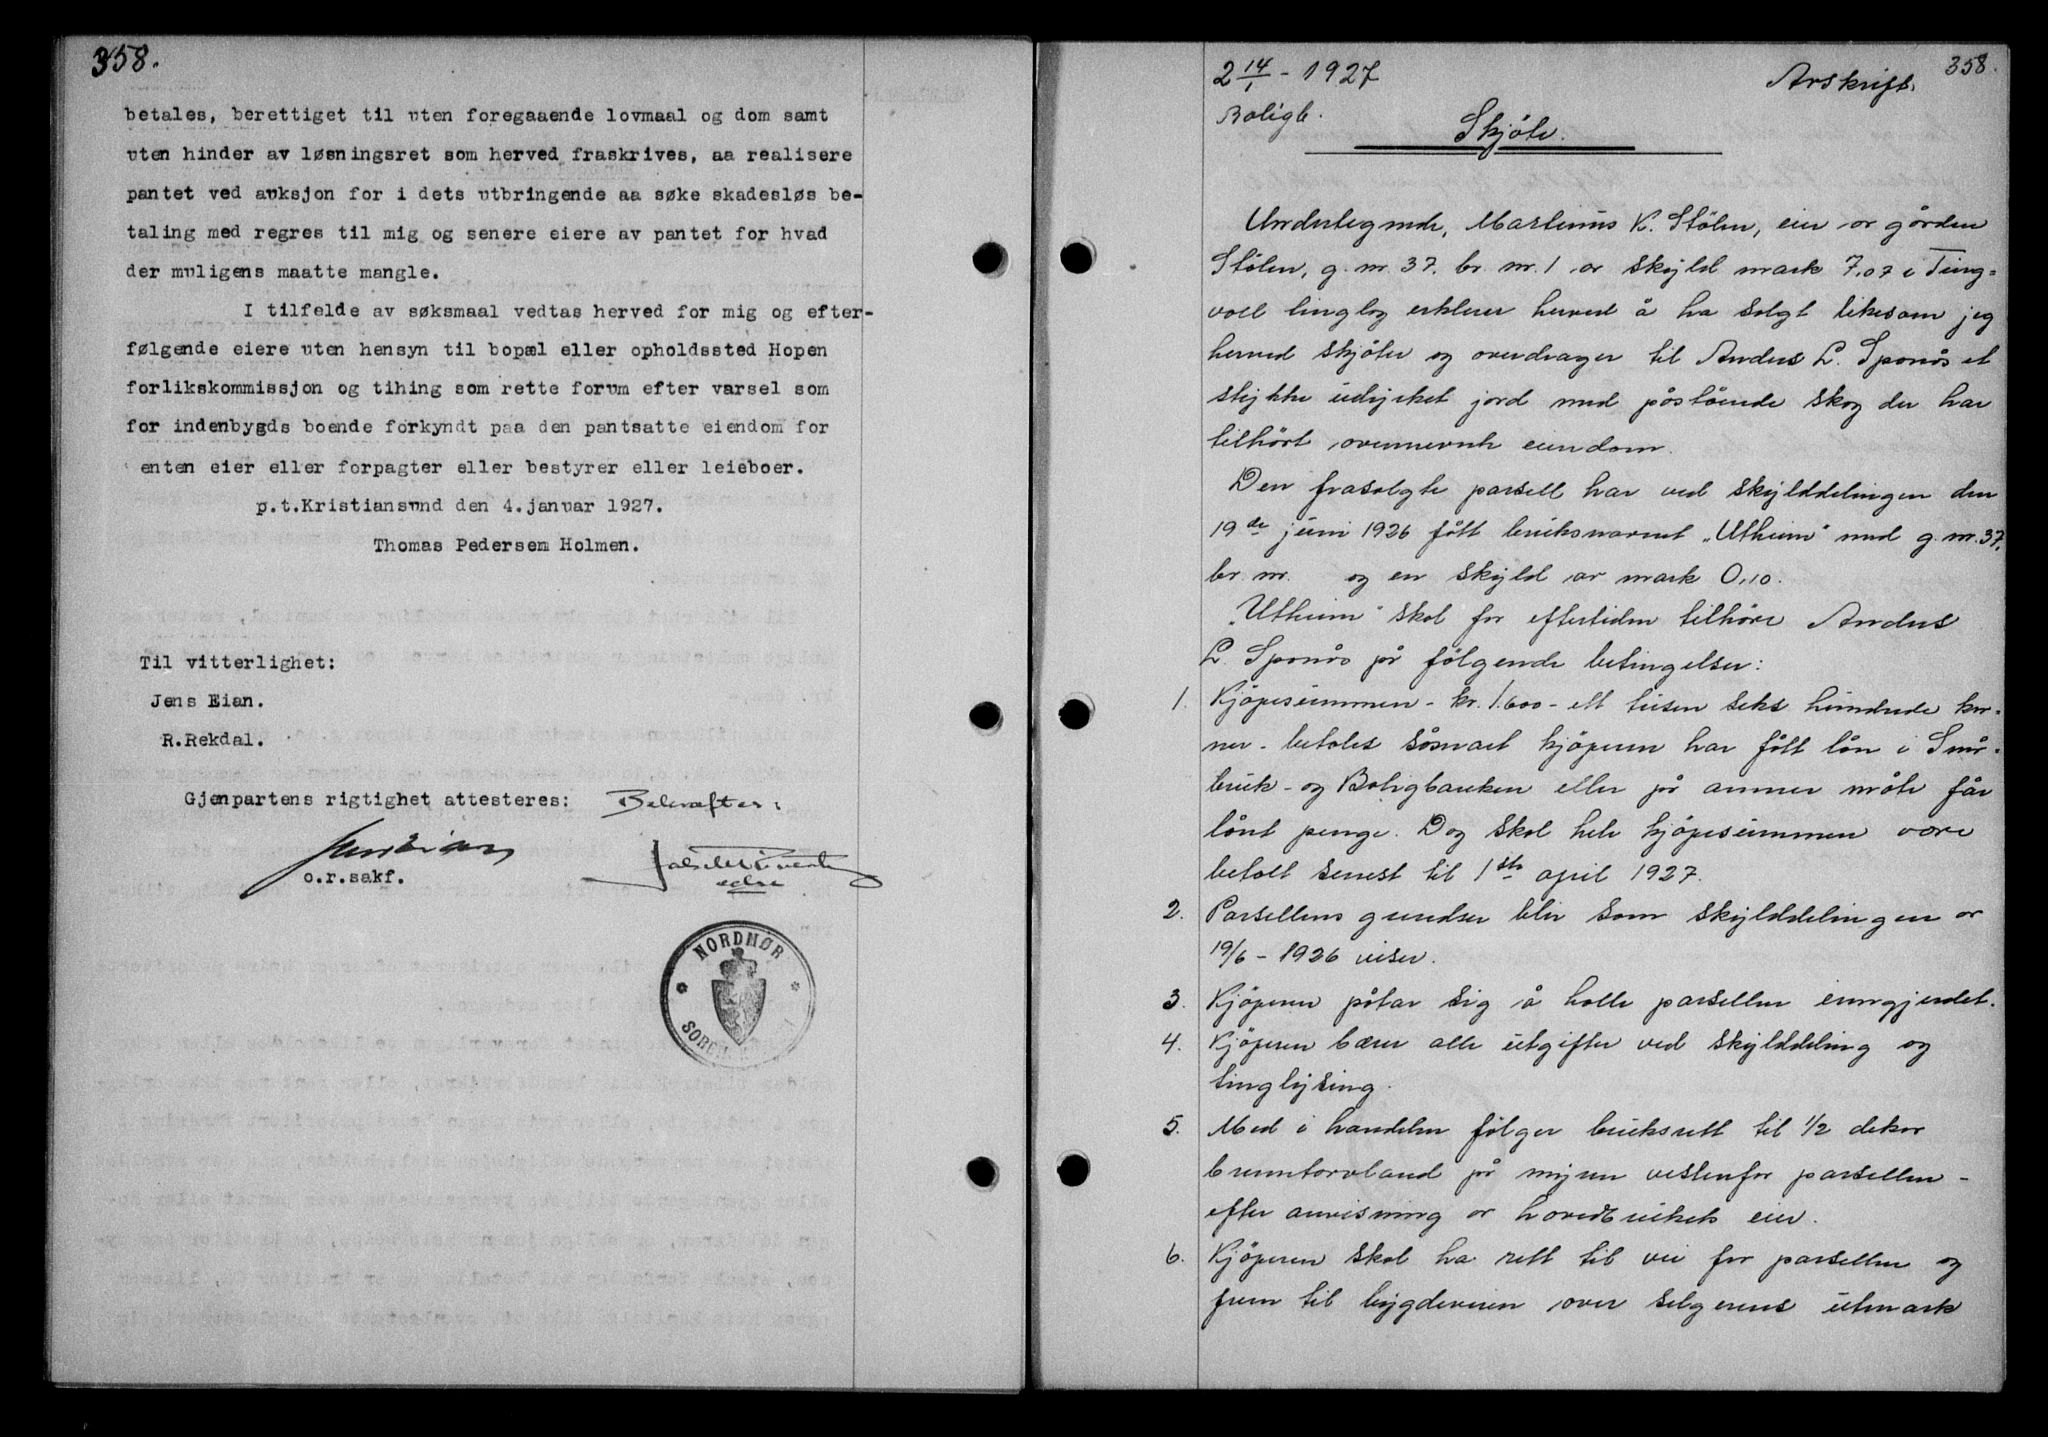 358.
betales, berettiget til uten foregaaende lovmaal og dom samt
uten hinder av løsningsret som herved fraskrives, aa realisere
pantet ved auksjon for i dets utbringende aa søke skadesløs be-
taling med regres til mig og senere eiere av pantet for hvad
der muligens maatte mangle.
I tilfelde av søksmaal vedtas herved for mig og efter-
følgende eiere uten hensyn til bopæl eller opholdssted Hopen
forlikskommissjon og tihing som rette forum efter varsel som
for indenbygds boende forkyndt paa den pantsatte eiendom for
enten eier eller forpagter eller bestyrer eller leieboer.
p.t.Kristiansund den 4.januar 1927.
Thomas Pedersem Holmen.
Til vitterlighet:
Jens Eian.
R.Rekdal.
Gjenpartens rigtighet attesteres: Bekræftes:
Jens Eian
o.r.sakf.
NORDMØR
SOREN
358.
2 14/1 - 1927
Avskrift.
Boligb.
Skjöte.
Undertegnede, Martinus K. Stölen, eier av gården
Stölen, g. nr. 37. br. nr. 1 av skyld mark 7,07 i Ting=
voll tinglag erklerer herved å ha solgt likesom jeg
herved skjöter og overdrager til Anders L. Sponås et
stykke udyrket jord med påstående skog der har
tilhört ovennevnte eiendom.
Den frasolgte parsell har ved skylddelingen den
19de juni 1926 fått bruksnavnet „Utheim" med g. nr. 37,
br. nr. og en skyld av mark 0,10.
„Utheim" skal for eftertiden tilhöre Anders
L. Sponås på fölgende betingelser:
1. Kjöpesummen - kr. 1.600 - ett tusen seks hundrede kro-
ner - betales såsnart kjöperen har fått lån i Små-
bruk- og Boligbanken eller på annen måte får
lånt penge. Dog skal hele kjöpesummen være
betalt senest til 1ste april 1927.
2. Parsellens grendser blir som skylddelingen av
19/6 - 1926 viser.
3. Kjöperen påtar sig å holde parsellen inngjerdet.
4. Kjöperen bærer alle utgifter ved skylddeling og
tinglysing.
5. Med i handelen fölger bruksrett til 1/2 dekar
brenntorvland på myren vestenfor parsellen -
efter anvisning av hovedbrukets eier.
6. Kjöperen skal ha rett til vei for parsellen og
frem til bygdeveien over selgerens utmark